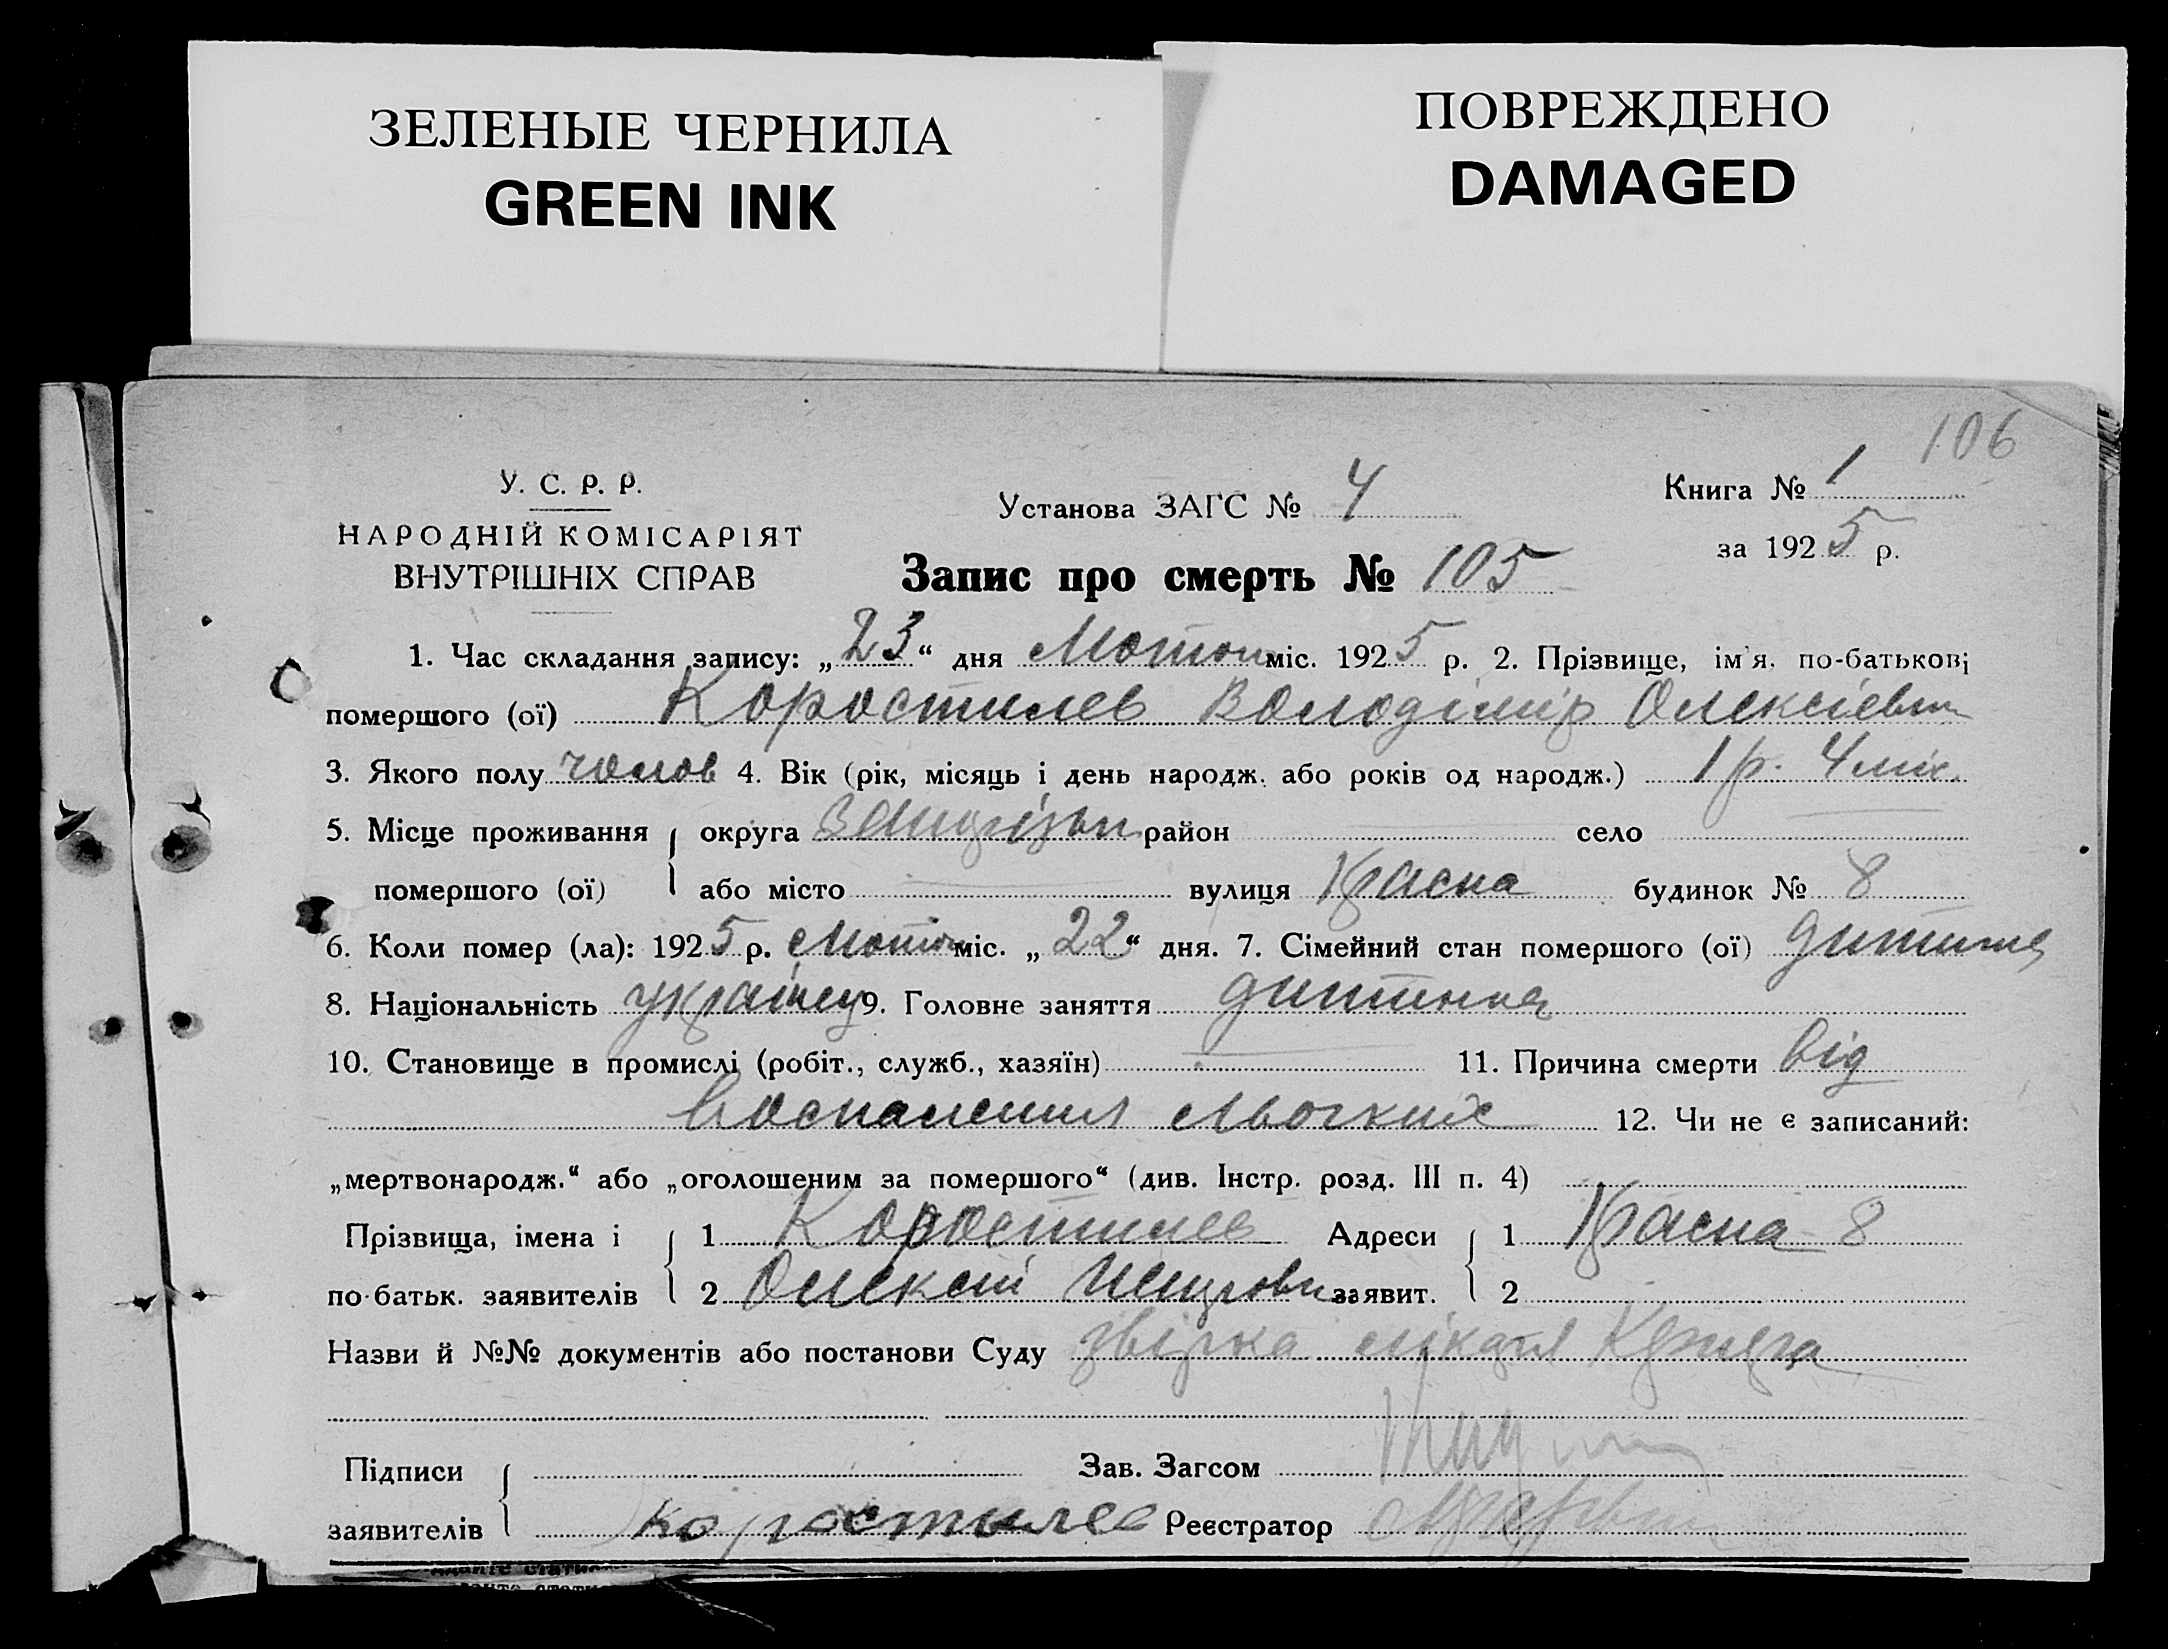 ЗЕЛЕНЫЕ ЧЕРНИЛА
GREEN INK
ПОВРЕЖДЕНО
DAMAGED
106
У. С. Р. Р.
НАРОДНІЙ КОМІСАРІЯТ
ВНУТРІШНІХ СПРАВ
Установа ЗАГС № 4
Книга № 1
за 1925 р.
Запис про смерть № 105
1. Час складання запису: „23“ дня міс. 1925 р. 2. Прізвище, ім'я, по-батькові
помершого (ої) Коростилев Володімір Олексієвич
3. Якого полу чолов 4. Вік (рік, місяць і день народж. або років од народж.) 1 р. 4 міс.
5. Місце проживання округа район село
помершого (ої) або місто вулиця Красна будинок № 8
6. Коли помер (ла): 1925 р. міс. „22“ дня. 7. Сімейний стан помершого (ої) дитина
8. Національність українец 9. Головне заняття дитина
10. Становище в промислі (робіт., служб., хазяїн) 11. Причина смерти від
воспаления льогких 12. Чи не є записаний:
„мертвонародж.“ або „оголошеним за помершого“ (див. Інстр. розд. III п. 4)
Прізвища, імена і 1 Коростилев Адреси 1 Красна 8
по-батьк. заявителів 2 Олексій заявит. 2
Назви й №№ документів або постанови Суду
Підписи Зав. Загсом
заявителів Коростылев Реєстратор